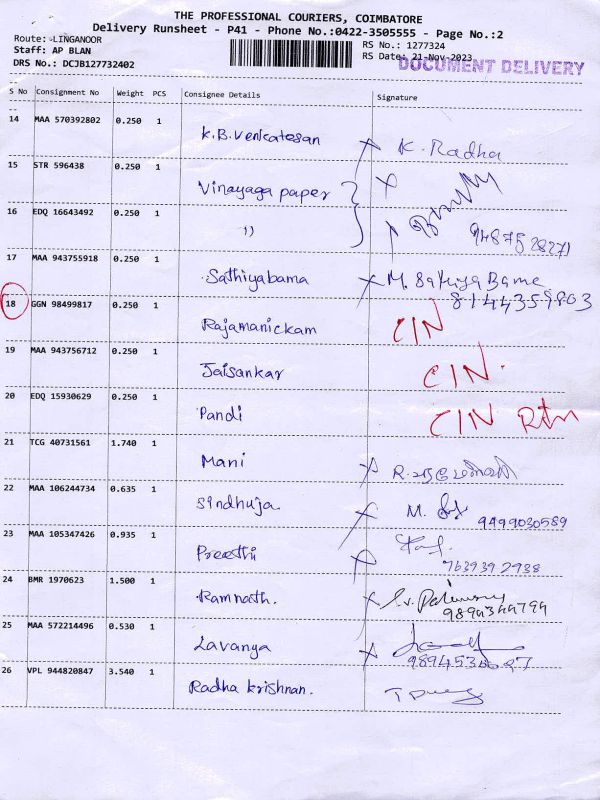 THE PROFESSIONAL COURIERS, COIMBATORE
Delivery Runsheet - P41 - Phone No.:0422-3505555 - Page No.:2
Route: LINGANOOR
RS No.: 1277324
Staff: AP BLAN
RS Date: 21-Nov-2023
DOCUMENT DELIVERY
DRS No.: DCJB127732402
S No Consignment No Weight PCS Consignee Details Signature
14 MAA 570392802 0.250 1 K.B.Venkatesan K. Radha
15 STR 596438 0.250 1 Vinayaga paper
16 EDQ 16643492 0.250 1 " 9487528271
17 MAA 943755918 0.250 1 Sathiyabama M. Sathiya Bama
8144359803
18 GGN 98499817 0.250 1 Rajamanickam CIN
19 MAA 943756712 0.250 1 Jaisankar CIN.
20 EDQ 15930629 0.250 1 Pandi CIN Rtn
21 TCG 40731561 1.740 1 Mani
22 MAA 106244734 0.635 1 Sindhuja M.
9499030589
23 MAA 105347426 0.935 1 Preethi
7639392938
24 BMR 1970623 1.500 1 Ramnath.
25 MAA 572214496 0.530 1 Lavanya
26 VPL 944820847 3.540 1 Radha Krishnan.